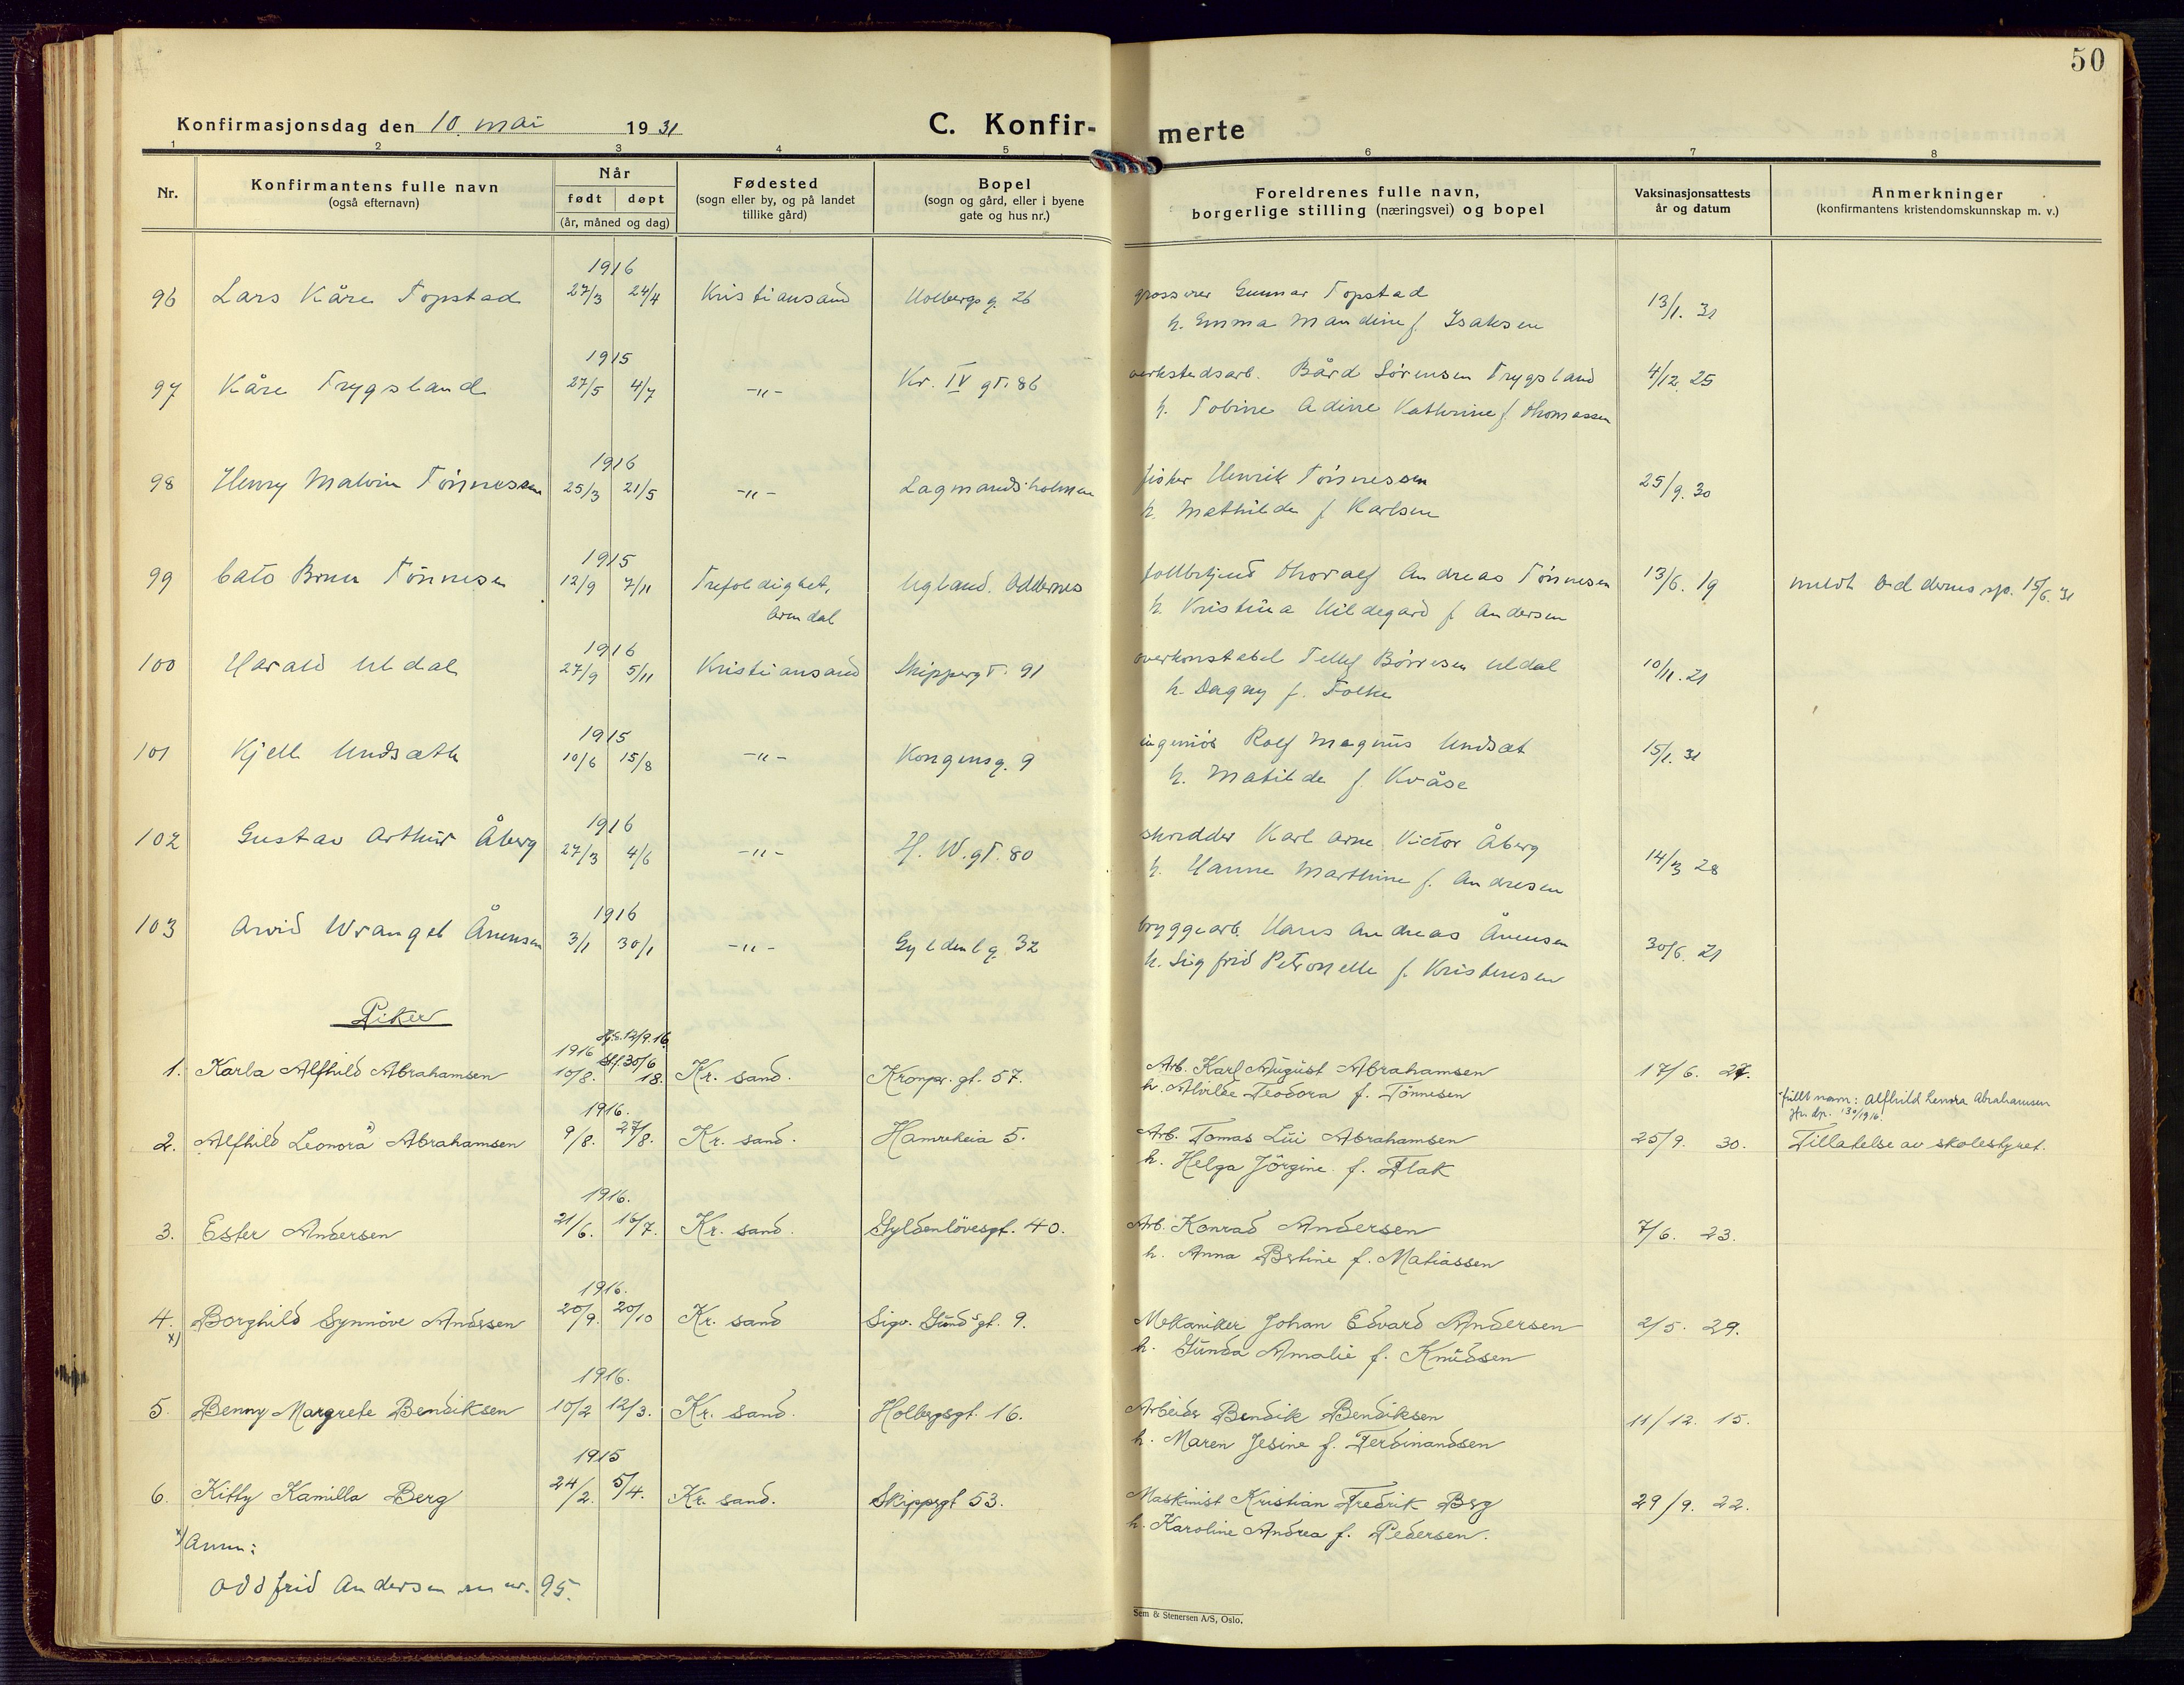 50
Konfirmasjonsdag den 10. mai 1931
C. Konfir-
merte
1 2 3 4 5 6 7 8
Nr. Konfirmantens fulle navn (også efternavn) Når født døpt (år, måned og dag) Fødested (sogn eller by, og på landet tillike gård) Bopel (sogn og gård, eller i byene gate og hus nr.) Foreldrenes fulle navn, borgerlige stilling (næringsvei) og bopel Vaksinasjonsattests år og datum Anmerkninger (konfirmantens kristendomskunnskap m. v.)
1916
96 Lars Kåre Topstad 27/3 24/4 Kristiansand Holbergs g. 26 grosserer Gunnar Topstad 13/1. 31
h. Emma Mandine f. Isaksen
1915
97 Kåre Trygsland 27/5 4/7 -"- Kr. IV gt. 86 verkstedsarb. Bård Sørensen Trygsland 4/12 25
h. Tobine Adine Kathrine f. Thomassen
1916
98 Henry Malvin Tönnessen 25/3 21/5 -"- Lagmandsholmen fisker Henrik Tönnessen 25/9. 30
h. Mathilde f Karlsen
1915
99 Cato Brun Tönnesen 12/9 7/11 Trefoldighet, Ugland. Oddernes Thoralf Andreas Tönnesen 13/6. 19 meldt Oddernes sp. 15/6. 31
Arendal h. Kristina Hildegard f Andersen
1916
100 Harald Uldal 27/9 5/11 Kristiansand Skippergt. 91 overkonstabel Tellef Börresen Uldal 10/11. 21
h. Dagny f. Folke
1915
101 Kjell Undsæth 10/6 15/8 -"- Kongensg. 9 ingeniör Rolf Magnus Undsæt 15/1. 31
h. Matilde f. Kvåse
1916
102 Gustav Arthur Åberg 27/3 4/6 -"- H. W. gt. 80 skredder Karl Arne Victor Åberg 14/3 28
h. Hanne Marthine f. Andresen
1916
103 Arvid Wrangel Ånensen 3/1 30/1 -"- Gyldenl g. 32 bryggearb. Hans Andreas Ånensen 30/6. 21
h. Sigfrid Petronelle f. Kristensen
Piker
1916 12/9. 16.
1. Karla Alfhild Abrahamsen 10/8. 30/6 18. Kr. sand. Kronpr. gt. 57. Arb. Karl August Abrahamsen 17/6. 27.
h. Alvilde Teodora f. Tönnesen
1916. fullt navn: Alfhild Lenora Abrahamsen
2. Alfhild Leonora Abrahamsen 9/8. 27/8. Kr. sand. Hamreheia 5. Arb. Tomas Lui Abrahamsen 25/9. 30. Tillatelse av skolestyret.
h. Helga Jörgine f. Flak
1916.
3. Ester Andersen 21/6. 16/7. Kr. sand. Gyldenlövesgt. 40. Arb. Konrad Andersen 7/6. 23.
h. Anna Bertine f. Matiassen
1916.
4. x) Borghild Synnöve Andersen 20/9. 20/10 Kr. sand Sigv. Gunds gt. 9. Mekaniker Johan Edvard Andersen 2/5. 29.
h. Gunda Amalie f. Knudsen
1916.
5. Benny Margrete Bendiksen 10/2 12/3. Kr. sand. Holbergsgt. 16. Arbeider Bendik Bendiksen 11/12. 15.
h. Maren Jesine f. Ferdinandsen
1915
6. Kitty Kamilla Berg 24/2. 5/4. Kr. sand. Skippergt 53. Maskinist Kristian Fredrik Berg 29/9. 22.
h. Karoline Andrea f. Pedersen.
x) Anm:
Oddfrid Andersen se nr. 95.
Sem & Stenersen A/S, Oslo.